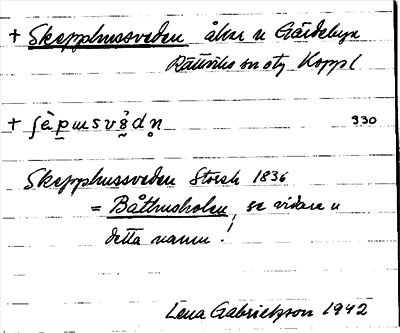 + Skepphussveden åker u Gärdebyn
Rättviks sn oty Koppl
+ ʃèpusvədn 330
Skepphussveden Storsk 1836
= Båthusholen, se vidare u
detta namn!
Lena Gabrielsson 1942